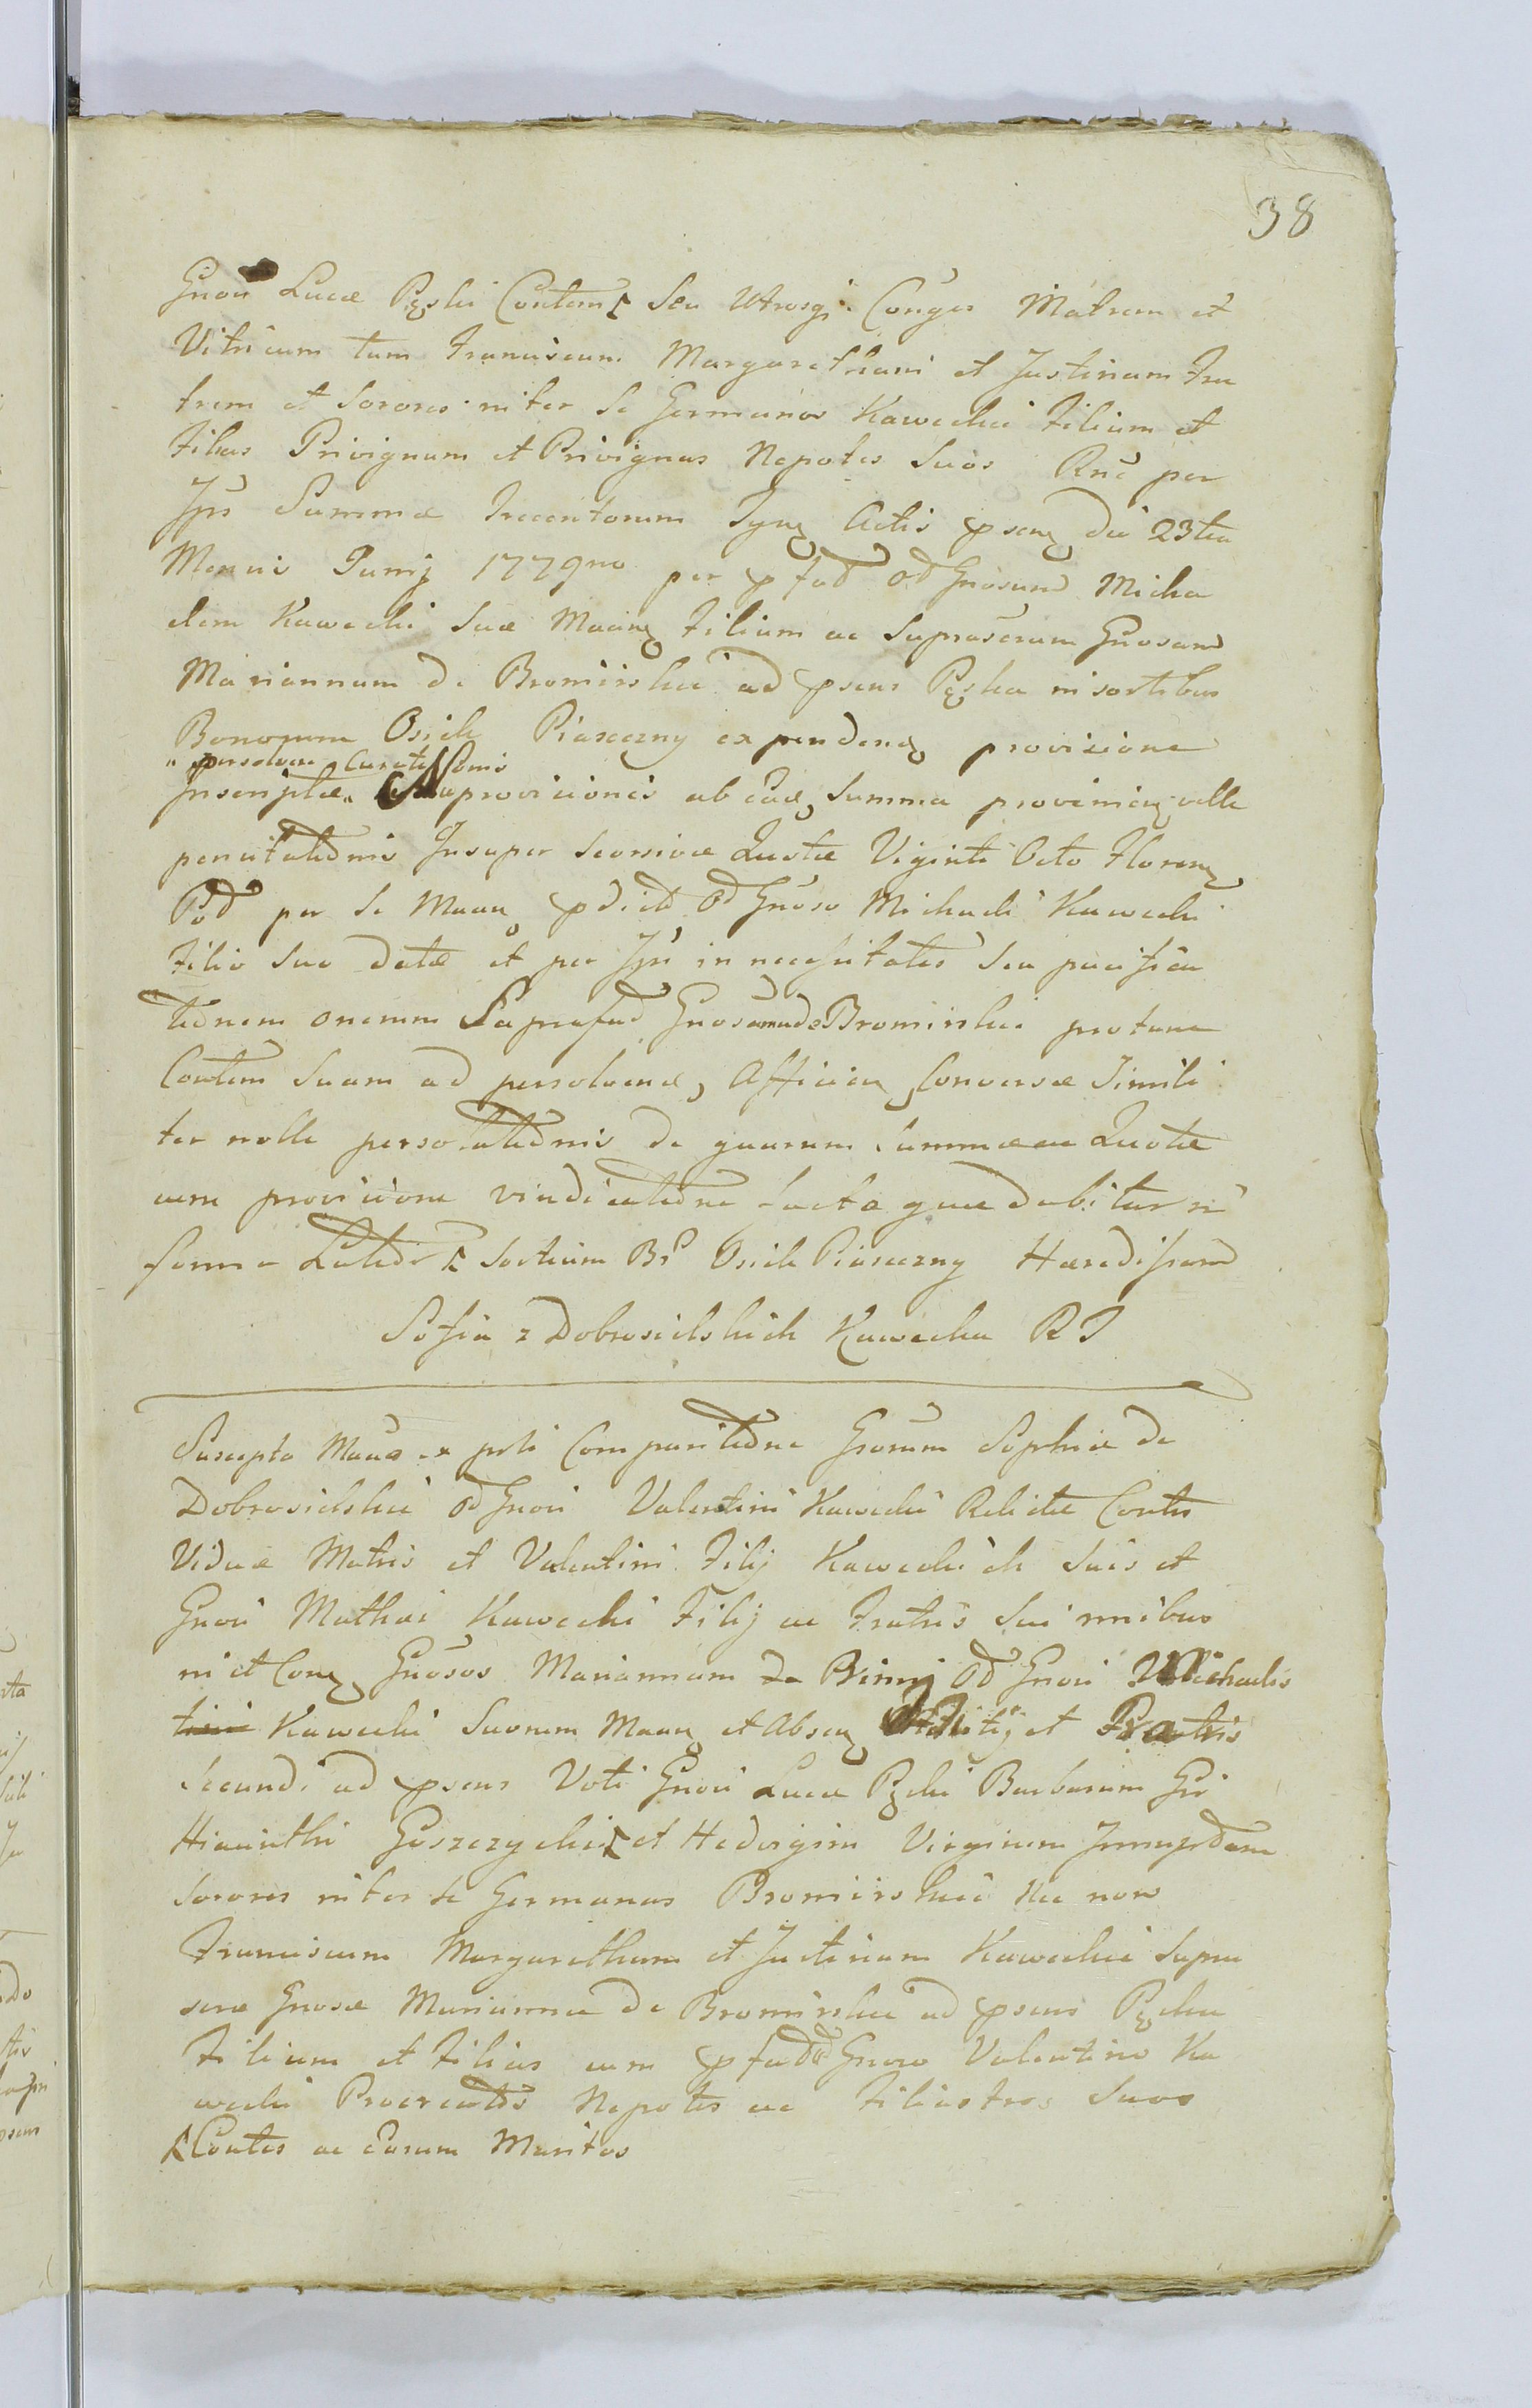 38
Gnosi Lucæ Pęski Contem Seu Utrosq Conges Matrem et
Vitricum tum Franciscum Margaretham et Justinam Fra
trem et Sorores inter se Germanos Kaweckie Filium et
Filias Privignum et Privignas Nepotes Suos Rne per
Ips Summæ Trecentorum Tyn Actis psen die 23tia
Mensis Junij 1779no per pfad od Gnosum Micha
elem Kawecki Suæ Maan Filium ac Suprascram Gnosam
Mariannam de Bromirskie ad psens Pęska in sortibus
Bonorum Osiek Piaseczny expenden provisione
persolven Curate Sonis
Inscriptæ provisionis ab eade Summa provenien velle
Insuper seorsivæ Quotæ Viginti Octo Floren
Pod per se Maan pdict od Gnoso Michaeli Kawecki
Filio Suo datæ et per Ips in necessitates seu pacifica
tednem onerum Suprafad Gnosam de Bromirskie protunc
Contem Suam ad persolvend Afficien Conversæ Simili
ter nolle persolutednis de quarum Summæ ac Quotæ
cum provisione vindicatedne facta quæ dabitur in
forma Latedr Sortium Br Osiek Piaseczny Hæredissam
Sofia z Dobrosielskich Kawecka R I
Suscepta Maua ex psti Comparitedne Gsorum Sophiæ de
Dobrosielskie od Gnosi Valentini Kawecki Relictæ Contis
Viduæ Matris et Valentini Filij Kaweckich Suis et
Gnosi Mathæi Kawecki Filij ac Fratris Sui nnibus
ni et Con Gnosos Mariannam de Brimj od Gnosi Michaelis
Kawecki Suorum Maan et Absen Filij et Fratris
Secundi ad psens Voti Gnosi Lucæ Pęski Barbaram Gsi
Hiacinthi Goszczycki et Hedvigim Virginem Innuptam
Sorores inter se Germanas Bromirskie Nec non
Franciscum Margaretham et Justinam Kaweckie Supra
scræ Gnosæ Mariannæ de Bromirskie ad psens Pęska
Filium et Filias cum pfad od Gnoso Valentino Ka
wecki Procreatos Nepotes ac Filiastros Suos
Contes ac Earum Maritos